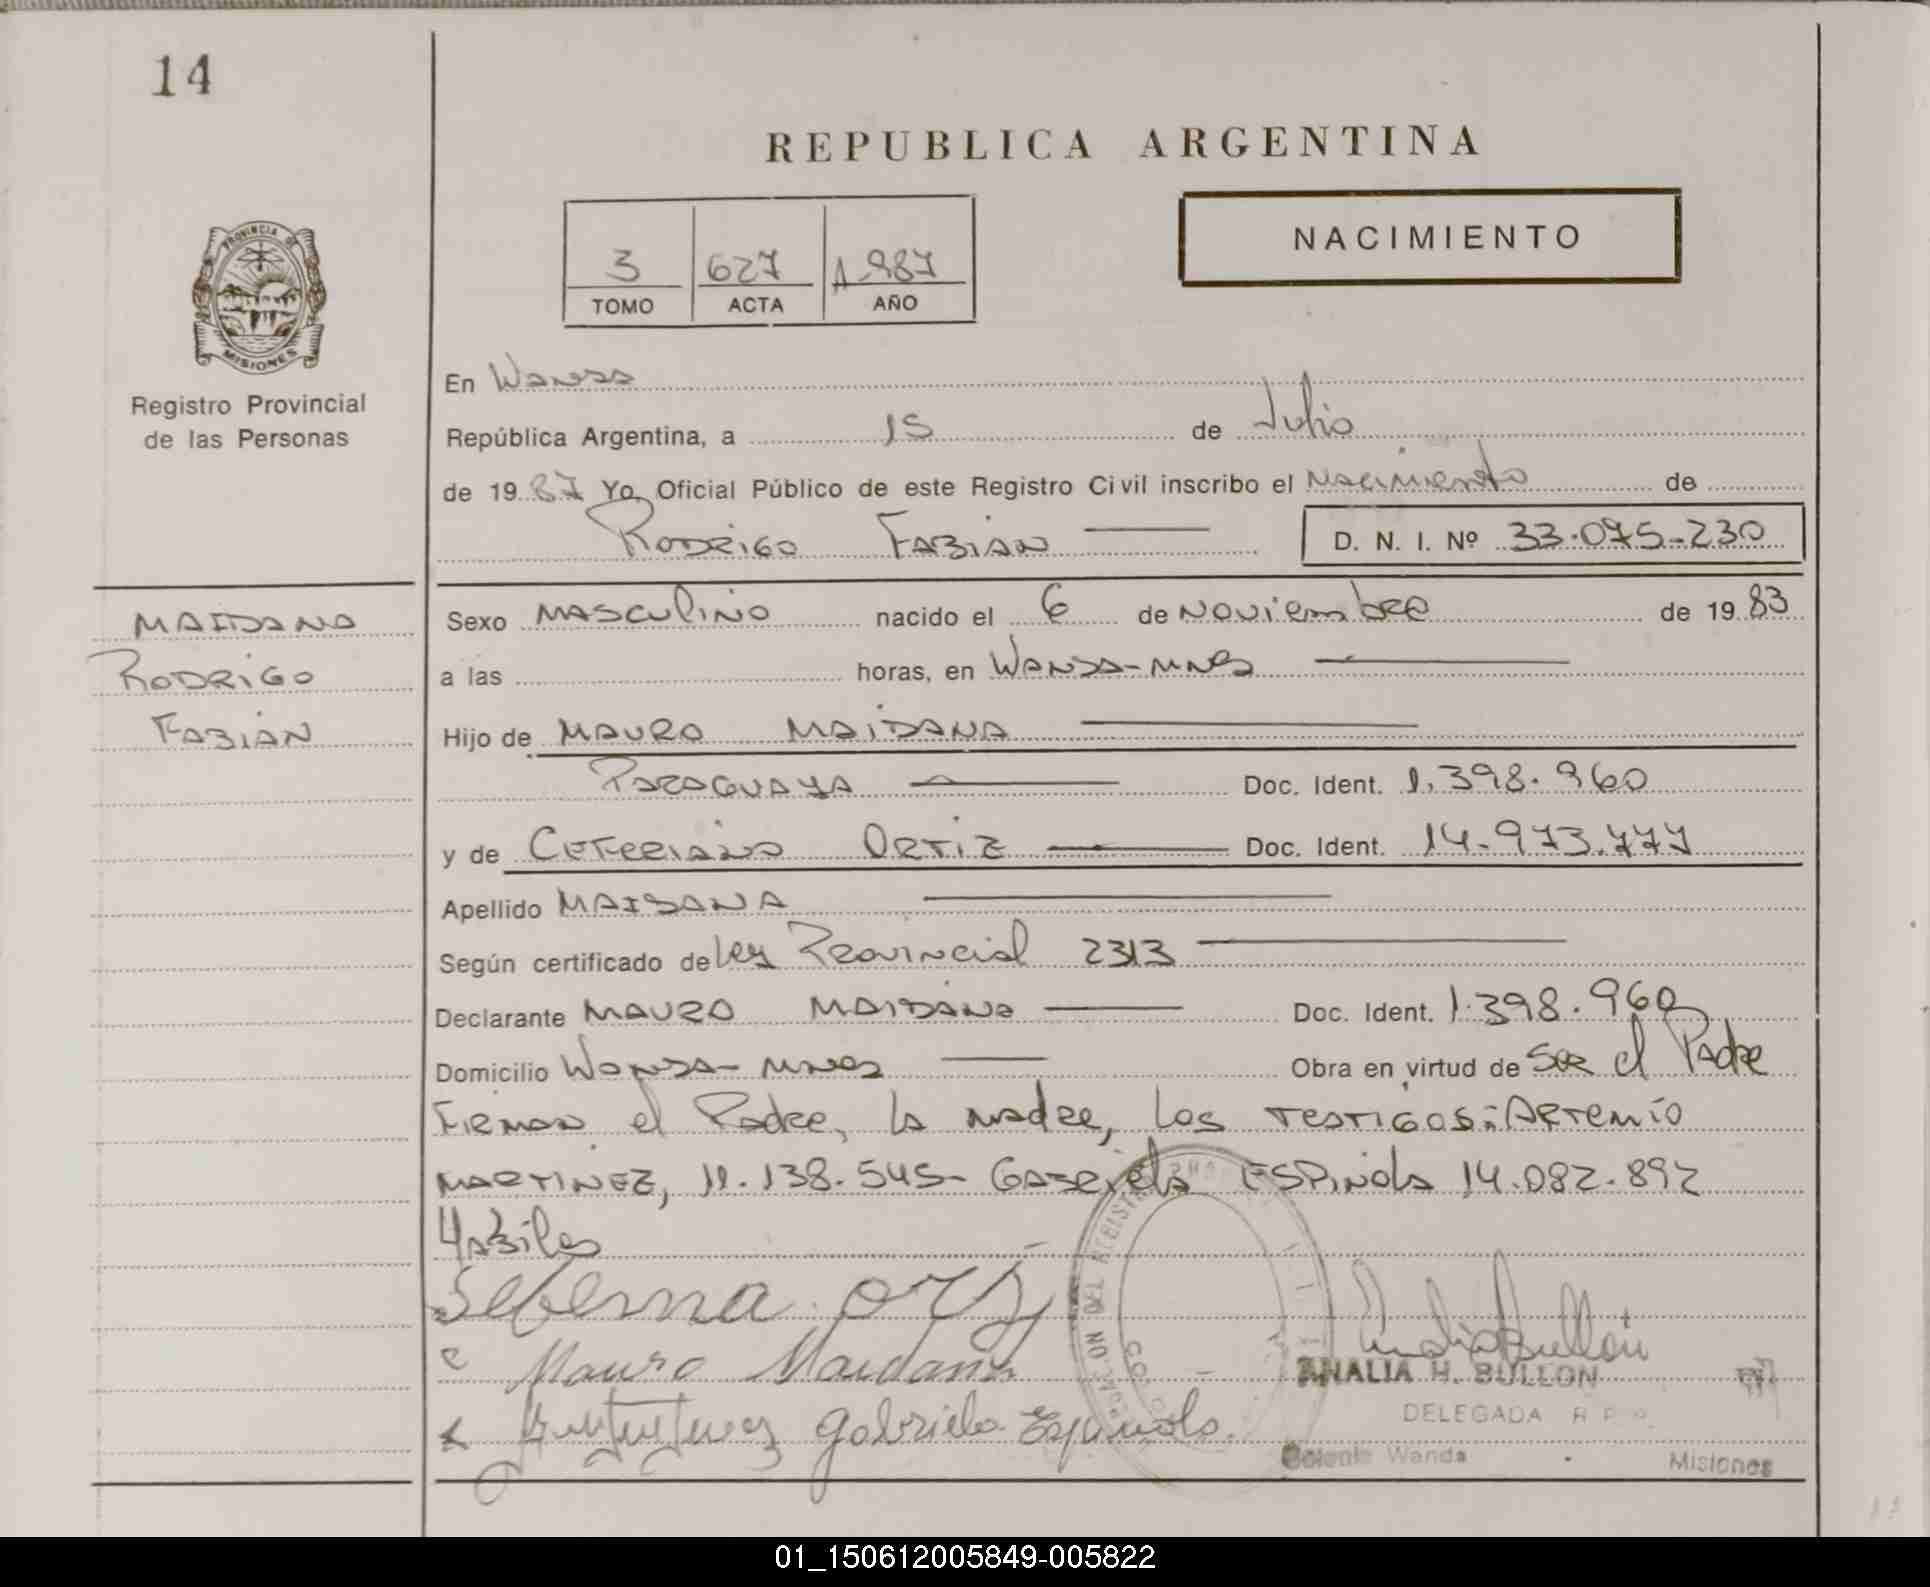 14
REPUBLICA ARGENTINA
NACIMIENTO
3 627 1987
TOMO ACTA AÑO
PROVINCIA DE
MISIONES
Registro Provincial
de las Personas
En Wanda
República Argentina, a 15 de Julio
de 1987 Yo, Oficial Público de este Registro Civil inscribo el Nacimiento de
RODRIGO FABIAN D. N. I. Nº 33.075.230
MAIDANA
RODRIGO
FABIAN
Sexo MASCULINO nacido el 6 de Noviembre de 1983
a las horas, en WANDA-MNES
Hijo de MAURO MAIDANA
PARAGUAYA Doc. Ident. 1.398.960
y de CEFERIANA ORTIZ Doc. Ident. 14.973.777
Apellido MAIDANA
Según certificado de Ley Provincial 2313
Declarante MAURO MAIDANA Doc. Ident. 1.398.960
Domicilio WANDA-MNES Obra en virtud de Ser el Padre
FIRMAN el Padre, la madre, los TESTIGOS: ARTEMIO
MARTINEZ, 11.138.545- GABRIELA ESPINOLA 14.082.892
HABILES
Seferna ortz
Mauro Maidana
Gabriela Espinola
ANALIA H. BULLON
DELEGADA R P P
Colonia Wanda Misiones
01_150612005849-005822